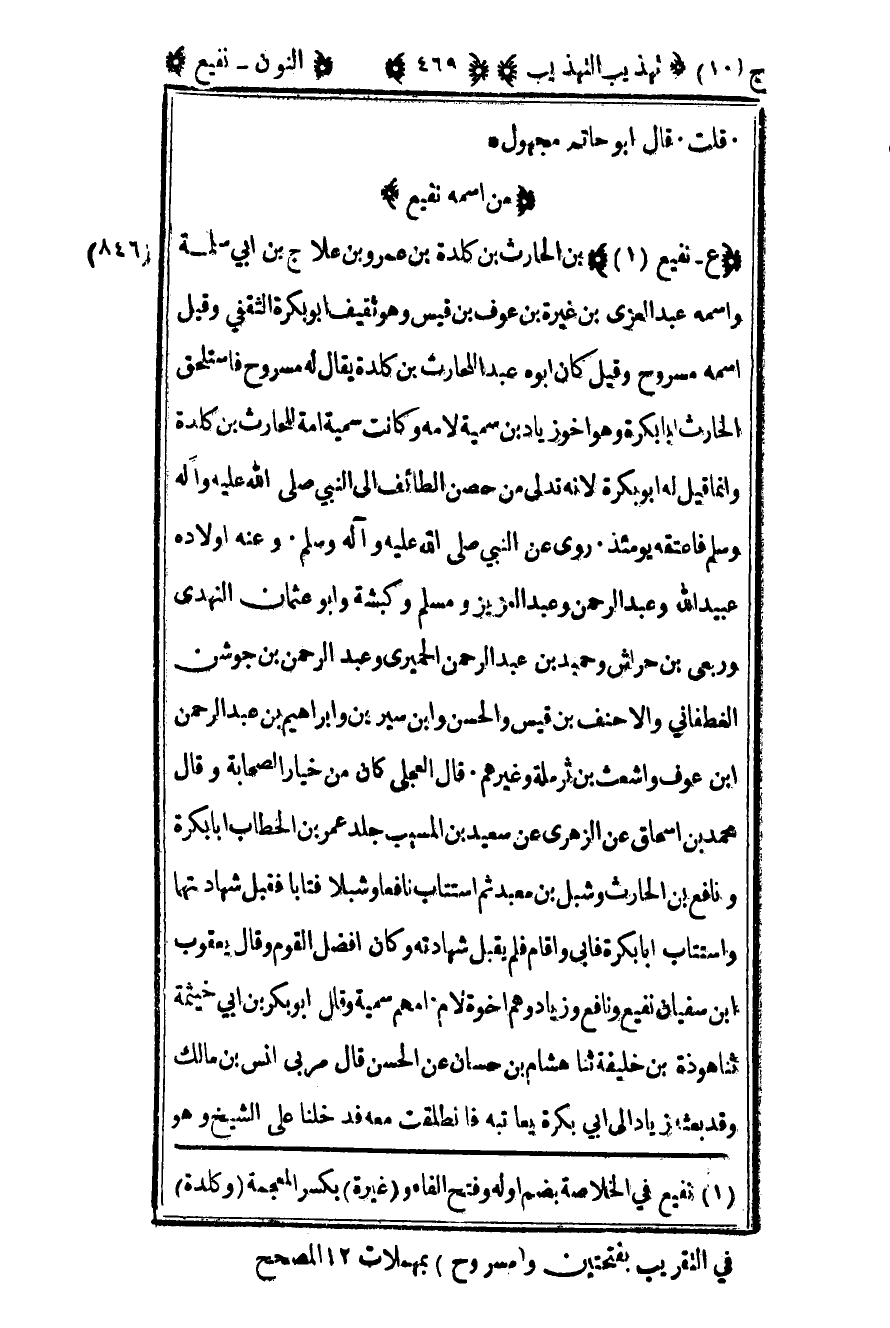 ج (١٠) ﴿ تهذيب التهذيب ﴾ ﴿ ٤٦٩ ﴾ ﴿ النون - نفيع ﴾
٠ قلت ٠ قال ابو حاتم مجهول *
﴿ من اسمه نفيع ﴾
﴿ ع - نفيع (١) ﴾ بن الحارث بن كلدة بن عمرو بن علاج بن ابي سلمة
(٨٤٦)
واسمه عبدالعزى بن غيرة بن عوف بن قيس وهو ثقيف ابو بكرة الثقفي وقيل
اسمه مسروح وقيل كان ابوه عبدا للحارث بن كلدة يقال له مسروح فاستلحق
الحارث ابا بكرة وهو اخو زياد بن سمية لامه وكانت سمية امة للحارث بن كلدة
وانما قيل له ابو بكرة لانه تدلى من حصن الطائف الى النبي صلى الله عليه وآله
وسلم فاعتقه يومئذ ٠ روى عن النبي صلى الله عليه وآله وسلم ٠ وعنه اولاده
عبيدالله وعبدالرحمن وعبدالعزيز ومسلم وكبشة وابو عثمان النهدى
وربعى بن حراش وحميد بن عبدالرحمن الحميرى وعبد الرحمن بن جوشن
الغطفاني والاحنف بن قيس والحسن وابن سيرين وابراهيم بن عبدالرحمن
ابن عوف واشعث بن ثرملة وغيرهم ٠ قال العجلى كان من خيار الصحابة وقال
محمد بن اسحاق عن الزهرى عن سعيد بن المسيب جلد عمر بن الخطاب ابا بكرة
ونافع بن الحارث وشبل بن معبد ثم استتاب نافعا وشبلا فتابا فقبل شهادتها
واستتاب ابا بكرة فابى واقام فلم يقبل شهادته وكان افضل القوم وقال يعقوب
ابن سفيان نفيع ونافع وزياد وهم اخوة لام ٠ امهم سمية وقال ابو بكر بن ابي خيثمة
ثنا هوذة بن خليفة ثنا هشام بن حسان عن الحسن قال مر بى انس بن مالك
وقد بعثه زياد الى ابي بكرة يعاتبه فانطلقت معه فدخلنا على الشيخ وهو
(١) نفيع في الخلاصة بضم اوله وفتح الفاء و (غيرة) بكسر المعجمة (وكلدة)
في التقريب بفتحتين و(مسروح) بمهملات ١٢ المصحح